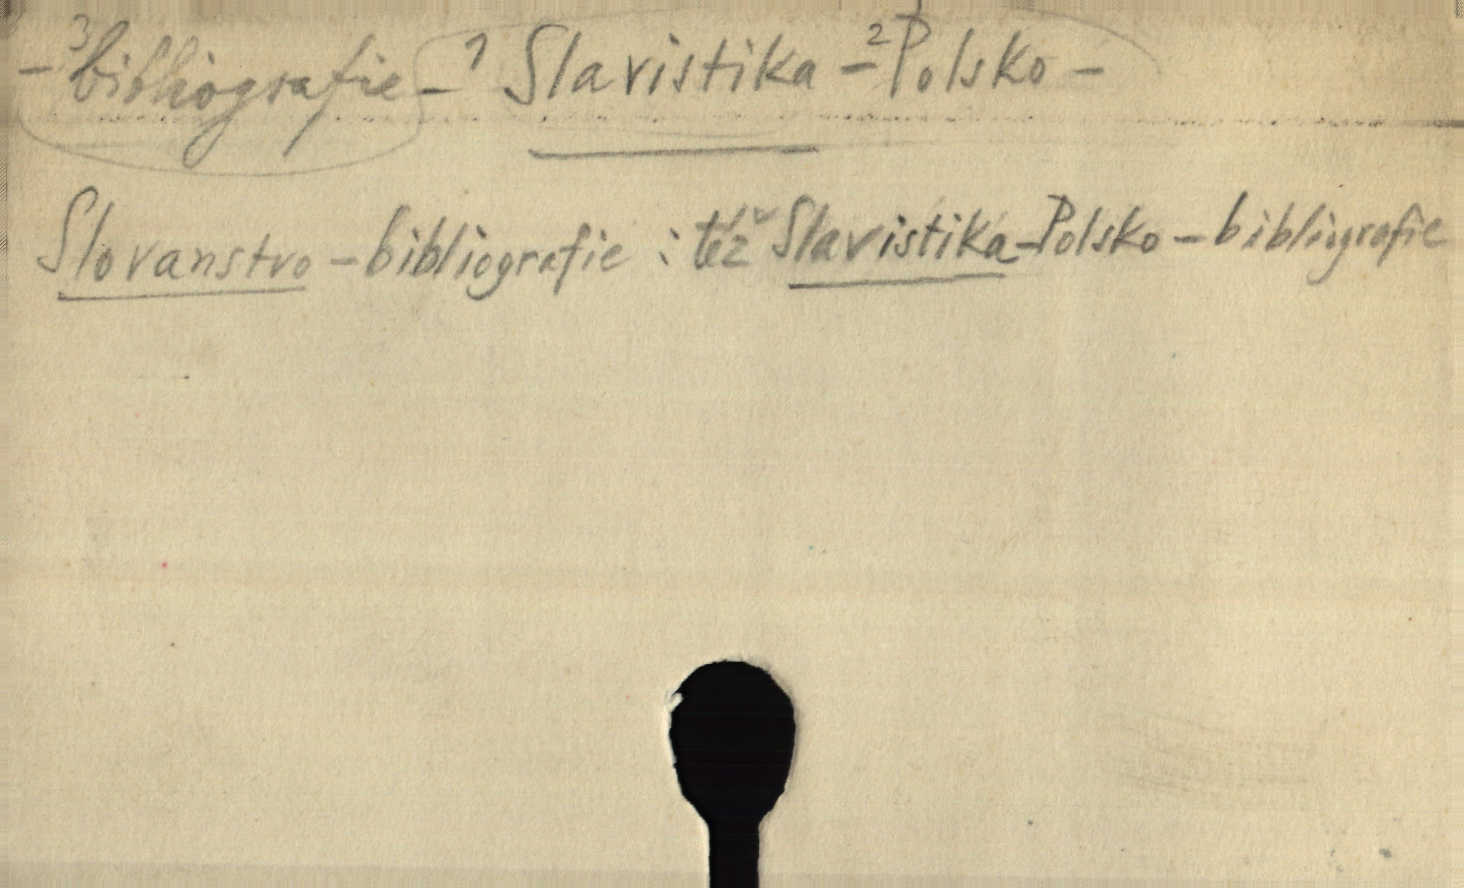 - ³bibliografie - ¹ Slavistika - ²Polsko -
Slovanstvo - bibliografie : též Slavistika - Polsko - bibliografie